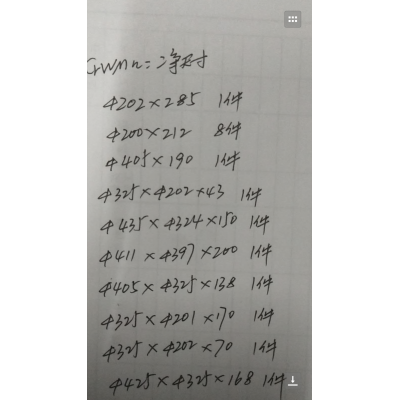 CrWMn=净尺寸
φ202×285 1件
φ200×212 8件
φ405×190 1件
φ325×φ202×43 1件
φ435×φ324×150 1件
φ411×φ397×200 1件
φ405×φ325×138 1件
φ325×φ201×170 1件
φ325×φ202×70 1件
φ425×φ325×168 1件